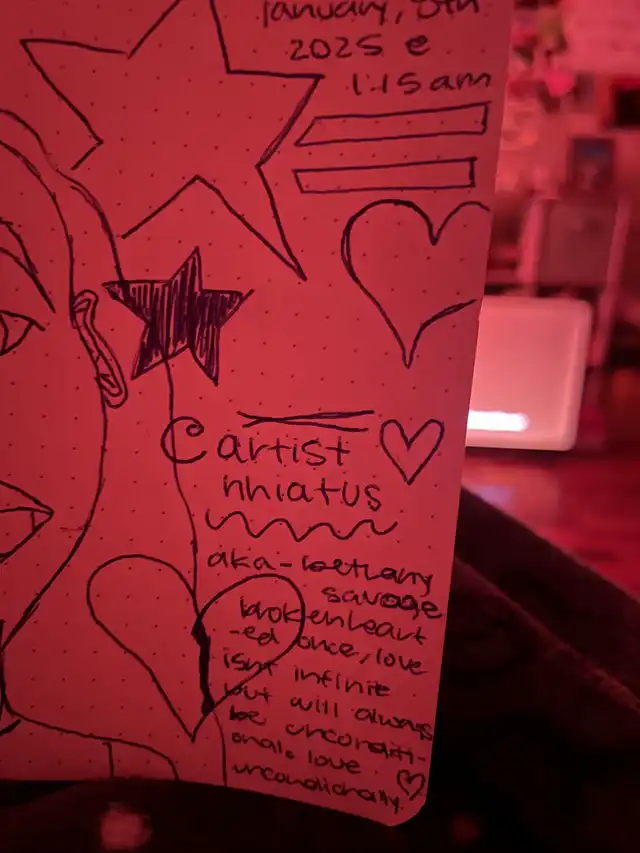 January, 8th
2025 @
1:15am
@artist
nhiatus
aka-bethany
savage
brokenheart
-ed once, love
isnt infinite
but will always
be unconditi-
onal. love
uncondionally.